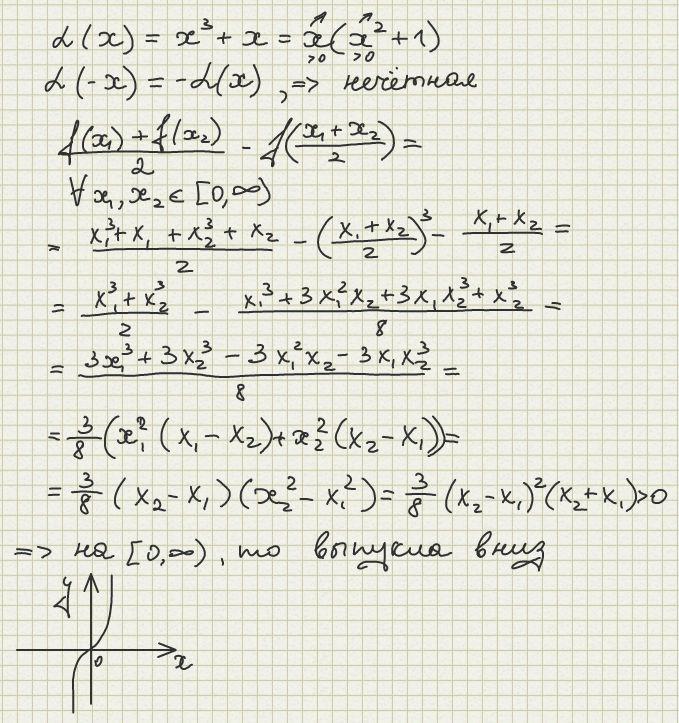 f(x) = x³ + x = x(x² + 1)
>0 >0
f(-x) = -f(x), => нечётная
(f(x₁) + f(x₂))/2 - f((x₁ + x₂)/2) =
∀ x₁, x₂ ∈ [0, ∞)
= (x₁³ + x₁ + x₂³ + x₂)/2 - ((x₁ + x₂)/2)³ - (x₁ + x₂)/2 =
= (x₁³ + x₂³)/2 - (x₁³ + 3x₁²x₂ + 3x₁x₂³ + x₂³)/8 =
= (3x₁³ + 3x₂³ - 3x₁²x₂ - 3x₁x₂³)/8 =
= 3/8 (x₁² (x₁ - x₂) + x₂² (x₂ - x₁)) =
= 3/8 (x₂ - x₁)(x₂² - x₁²) = 3/8 (x₂ - x₁)² (x₂ + x₁) > 0
=> на [0, ∞), то выпукла вниз
y
0 x